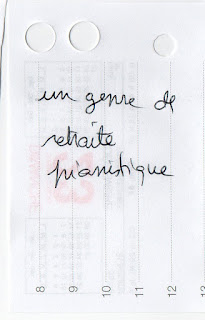 un genre de
retraite
pianistique
8
9
10
11
12
13